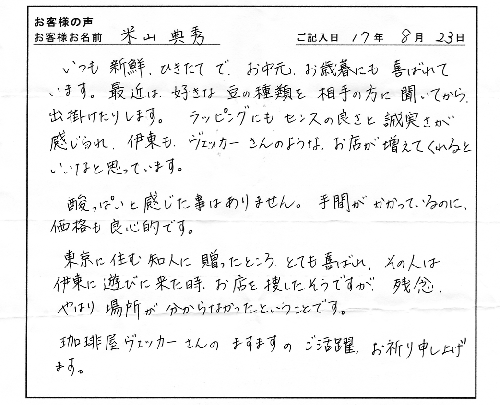 お客様の声
お客様お名前 米山 典秀 ご記入日 17年 8月 23日
いつも 新鮮、ひきたてで、お中元、お歳暮にも 喜ばれて
います。最近は、好きな 豆の種類を 相手の方に 聞いてから、
出掛けたりします。 ラッピングにも センスの良さと 誠実さが
感じられ、伊東も、ヴェッカーさんのような、お店が 増えてくれると
いいなと思っています。
酸っぱいと感じた事はありません。 手間が かかっているのに、
価格も 良心的です。
東京に住む 知人に 贈ったところ、とても喜ばれ、その人は
伊東に 遊びに 来た時、お店を 捜したそうですが、 残念、
やはり 場所が 分からなかったということです。
珈琲屋ヴェッカーさんの ますますの ご活躍、お祈り申し上げ
ます。